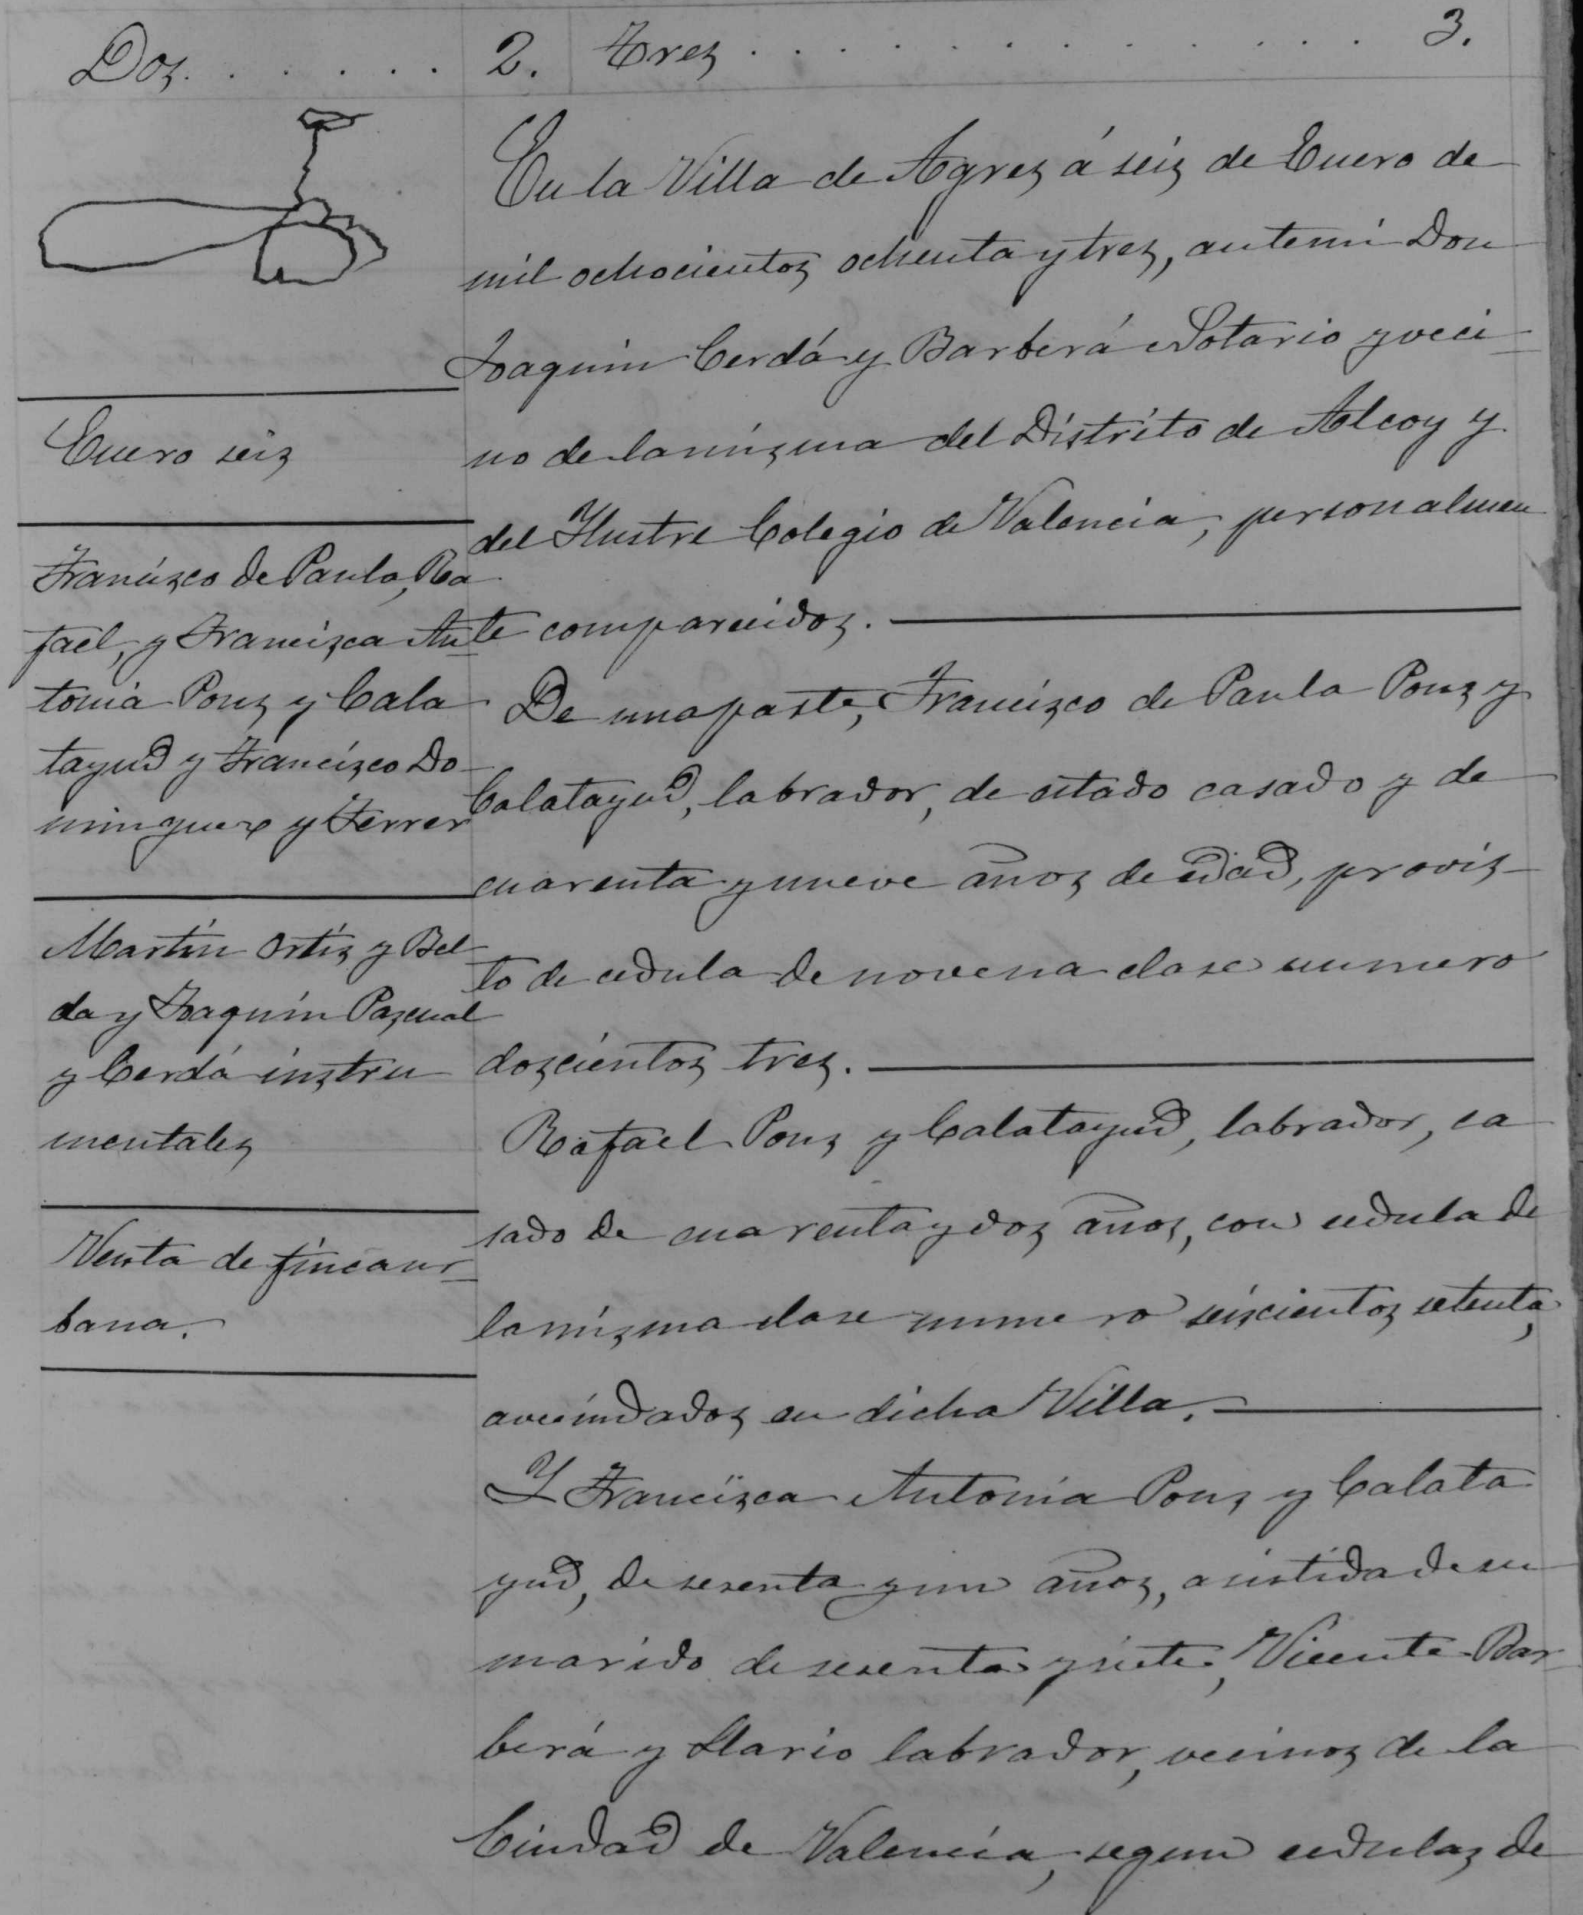 Dos. . . . . . 2.
Tres . . . . . . . . . . . . 3.
Enero seis
Francisco de Paula, Ra
fael, y Francisca An
tonia Pons y Cala
tayud y Francisco Do
minguez y Ferrer
Martín Ortíz y Bel
da y Joaquín Pascual
y Cerdá instru
mentales
Venta de finca ur
bana.
En la Villa de Agres á seis de Enero de
mil ochocientos ochenta y tres, ante mi Don
Joaquin Cerdá y Barberá Notario y veci-
no de la misma del Distrito de Alcoy y
del Ylustre Colegio de Valencia, personalmen
te comparecidos.
De una parte, Francisco de Paula Pons y
Calatayud, labrador, de estado casado y de
cuarenta y nueve años de edad, provis-
to de cedula de novena clase numero
doscientos tres.
Rafael Pons y Calatayud, labrador, ca
sado de cuarenta y dos años, con cedula de
la misma clase numero seiscientos setenta,
avecindados en dicha Villa.
Y Francisca Antonia Pons y Calata
yud, de sesenta y un años, asistida de su
marido de sesenta y siete, Vicente Bar
berá y Llario labrador, vecinos de la
Ciudad de Valencia, segun cedulas de